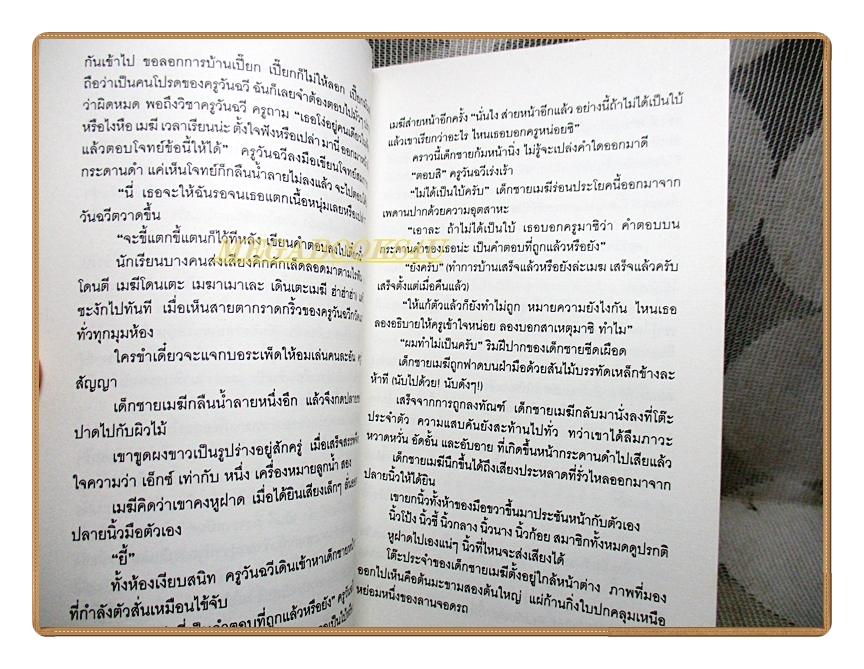 กันเข้าไป ขอลอกการบ้านเปี๊ยก เปี๊ยกก็ไม่ให้ลอก เปี๊ยก
ถือว่าเป็นคนโปรดของครูวันฉวี ฉันก็เลยจำต้องตอบไปมั่วๆ
ว่าผิดหมด พอถึงวิชาครูวันฉวี ครูถาม “เธอโง่อยู่คนเดียว
หรือไงหือ เมฆี เวลาเรียนน่ะ ตั้งใจฟังหรือเปล่า มานี่ ออกมา
แล้วตอบโจทย์ข้อนี้ให้ได้” ครูวันฉวีลงมือเขียนโจทย์
กระดานดำ แค่เห็นโจทย์ก็กลืนน้ำลายไม่ลงแล้ว จะไปตอบ
“นี่ เธอจะให้ฉันรอจนเธอแตกเนื้อหนุ่มเลยหรือ
วันฉวีตวาดขึ้น
“จะขี้แตกขี้แตนก็ไว้ทีหลัง เขียนคำตอบลงไป
นักเรียนบางคนส่งเสียงคิกคักเล็ดลอดมาตาม
โดนตี เมฆีโดนเตะ เมฆาเมาเละ เดินเตะเมฆี ฮ่าฮ่าฮ่า
ชะงักไปทันที เมื่อเห็นสายตากราดกริ้วของครูวันฉวี
ทั่วทุกมุมห้อง
ใครขำเดี๋ยวจะแจกบอระเพ็ดให้อมเล่นคนละอัน
สัญญา
เด็กชายเมฆีกลืนน้ำลายหนึ่งอึก แล้วจึงกดปลาย
ปาดไปกับผิวไม้
เขาขูดผงขาวเป็นรูปร่างอยู่สักครู่ เมื่อเสร็จ
ใจความว่า เอ็กซ์ เท่ากับ หนึ่ง เครื่องหมายลูกน้ำ สอง
เมฆีคิดว่าเขาคงหูฝาด เมื่อได้ยินเสียงเล็กๆ
ปลายนิ้วมือตัวเอง
“ยี้”
ทั้งห้องเงียบสนิท ครูวันฉวีเดินเข้าหาเด็กชาย
ที่กำลังตัวสั่นเหมือนไข้จับ
เป็นคำตอบที่ถูกแล้วหรือยัง”
เมฆีส่ายหน้าอีกครั้ง “นั่นไง ส่ายหน้าอีกแล้ว อย่างนี้ถ้าไม่ได้เป็นใบ้
แล้วเขาเรียกว่าอะไร ไหนเธอบอกครูหน่อยซิ”
คราวนี้เด็กชายก้มหน้านิ่ง ไม่รู้จะเปล่งคำใดออกมาดี
“ตอบสิ” ครูวันฉวีเร่งเร้า
“ไม่ได้เป็นใบ้ครับ” เด็กชายเมฆีร่อนประโยคนี้ออกมาจาก
เพดานปากด้วยความอุตสาหะ
“เอาละ ถ้าไม่ได้เป็นใบ้ เธอบอกครูมาซิว่า คำตอบบน
กระดานดำของเธอน่ะ เป็นคำตอบที่ถูกแล้วหรือยัง”
“ยังครับ” (ทำการบ้านเสร็จแล้วหรือยังล่ะเมฆ เสร็จแล้วครับ
เสร็จตั้งแต่เมื่อคืนแล้ว)
“ให้แก้ตัวแล้วก็ยังทำไม่ถูก หมายความยังไงกัน ไหนเธอ
ลองอธิบายให้ครูเข้าใจหน่อย ลองบอกสาเหตุมาซิ ทำไม”
“ผมทำไม่เป็นครับ” ริมฝีปากของเด็กชายซีดเผือด
เด็กชายเมฆีถูกฟาดบนฝ่ามือด้วยสันไม้บรรทัดเหล็กข้างละ
ห้าที (นับไปด้วย! นับดังๆ!)
เสร็จจากการถูกลงทัณฑ์ เด็กชายเมฆีกลับมานั่งลงที่โต๊ะ
ประจำตัว ความแสบคันยังสะท้านไปทั่ว ทว่าเขาได้ลืมภาวะ
หวาดหวั่น อัดอั้น และอับอาย ที่เกิดขึ้นหน้ากระดานดำไปเสียแล้ว
เด็กชายเมฆีนึกขึ้นได้ถึงเสียงประหลาดที่รั่วไหลออกมาจาก
ปลายนิ้วให้ได้ยิน
เขายกนิ้วทั้งห้าของมือขวาขึ้นมาประชันหน้ากับตัวเอง
นิ้วโป้ง นิ้วชี้ นิ้วกลาง นิ้วนาง นิ้วก้อย สมาชิกทั้งหมดดูปรกติ
หูฝาดไปเองแน่ๆ นิ้วที่ไหนจะส่งเสียงได้
โต๊ะประจำของเด็กชายเมฆีตั้งอยู่ใกล้หน้าต่าง ภาพที่มอง
ออกไปเห็นคือต้นมะขามสองต้นใหญ่ แผ่ก้านกิ่งใบปกคลุมเหนือ
หย่อมหนึ่งของลานจอดรถ
MEGABOOKS4U